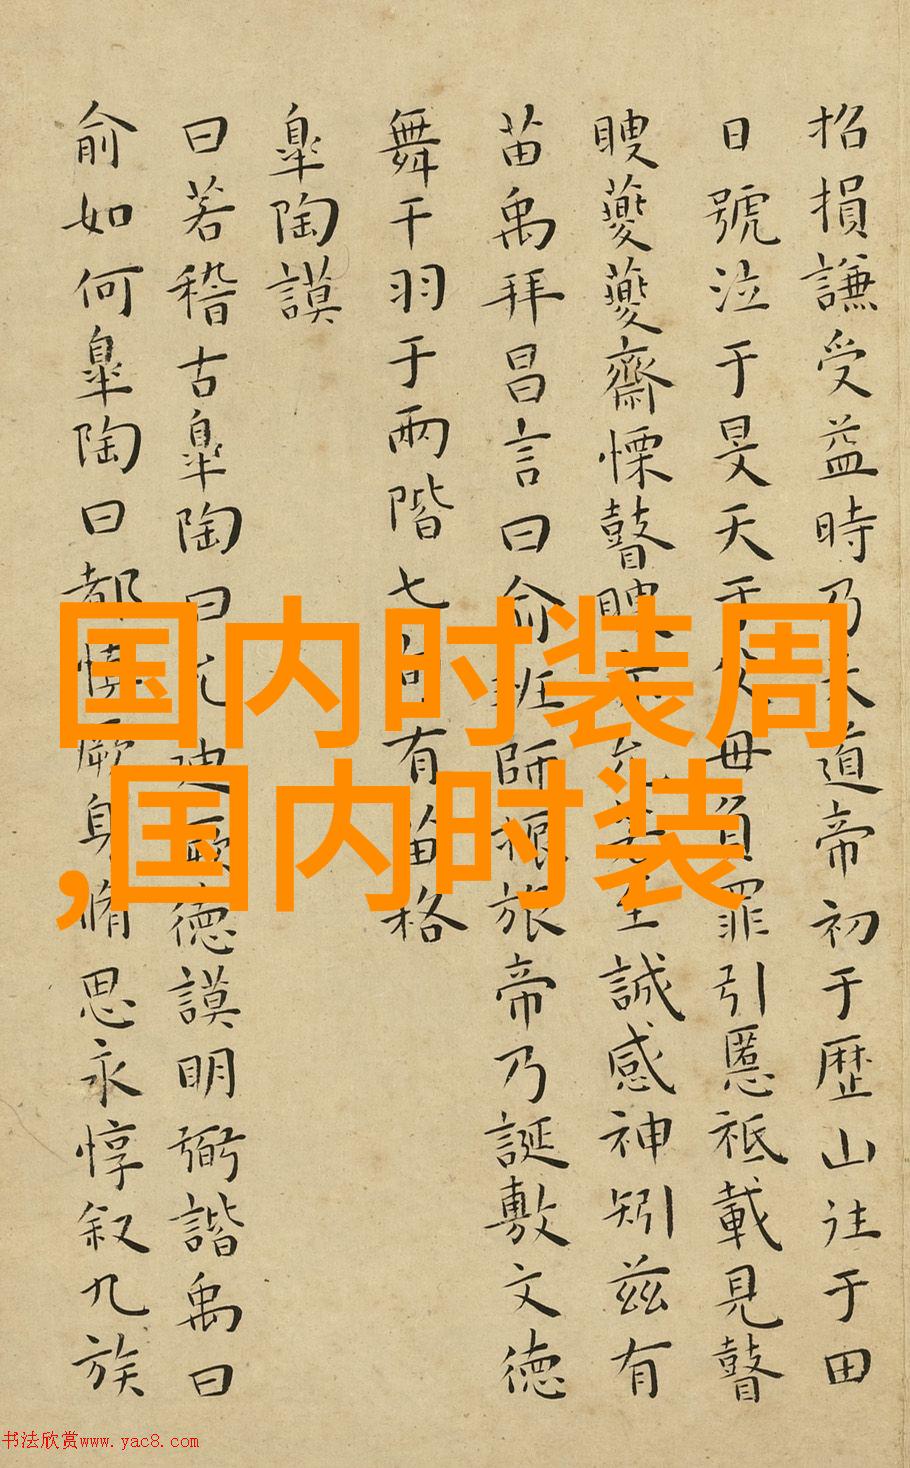 招損謙受益時乃天道帝初于歷山往于田
日號泣于旻天于父母負罪引慝祗載見瞽
瞍夔夔齋慄瞽瞍亦允若至誠感神矧茲有
苗禹拜昌言曰俞班師振旅帝乃誕敷文德
舞干羽于兩階七旬有苗格
皋陶謨
曰若稽古皋陶曰允迪厥德謨明弼諧禹曰
俞如何皋陶曰都慎厥身脩思永惇叙九族
国内时装周
,国内时装
书法欣赏www.yac8.com